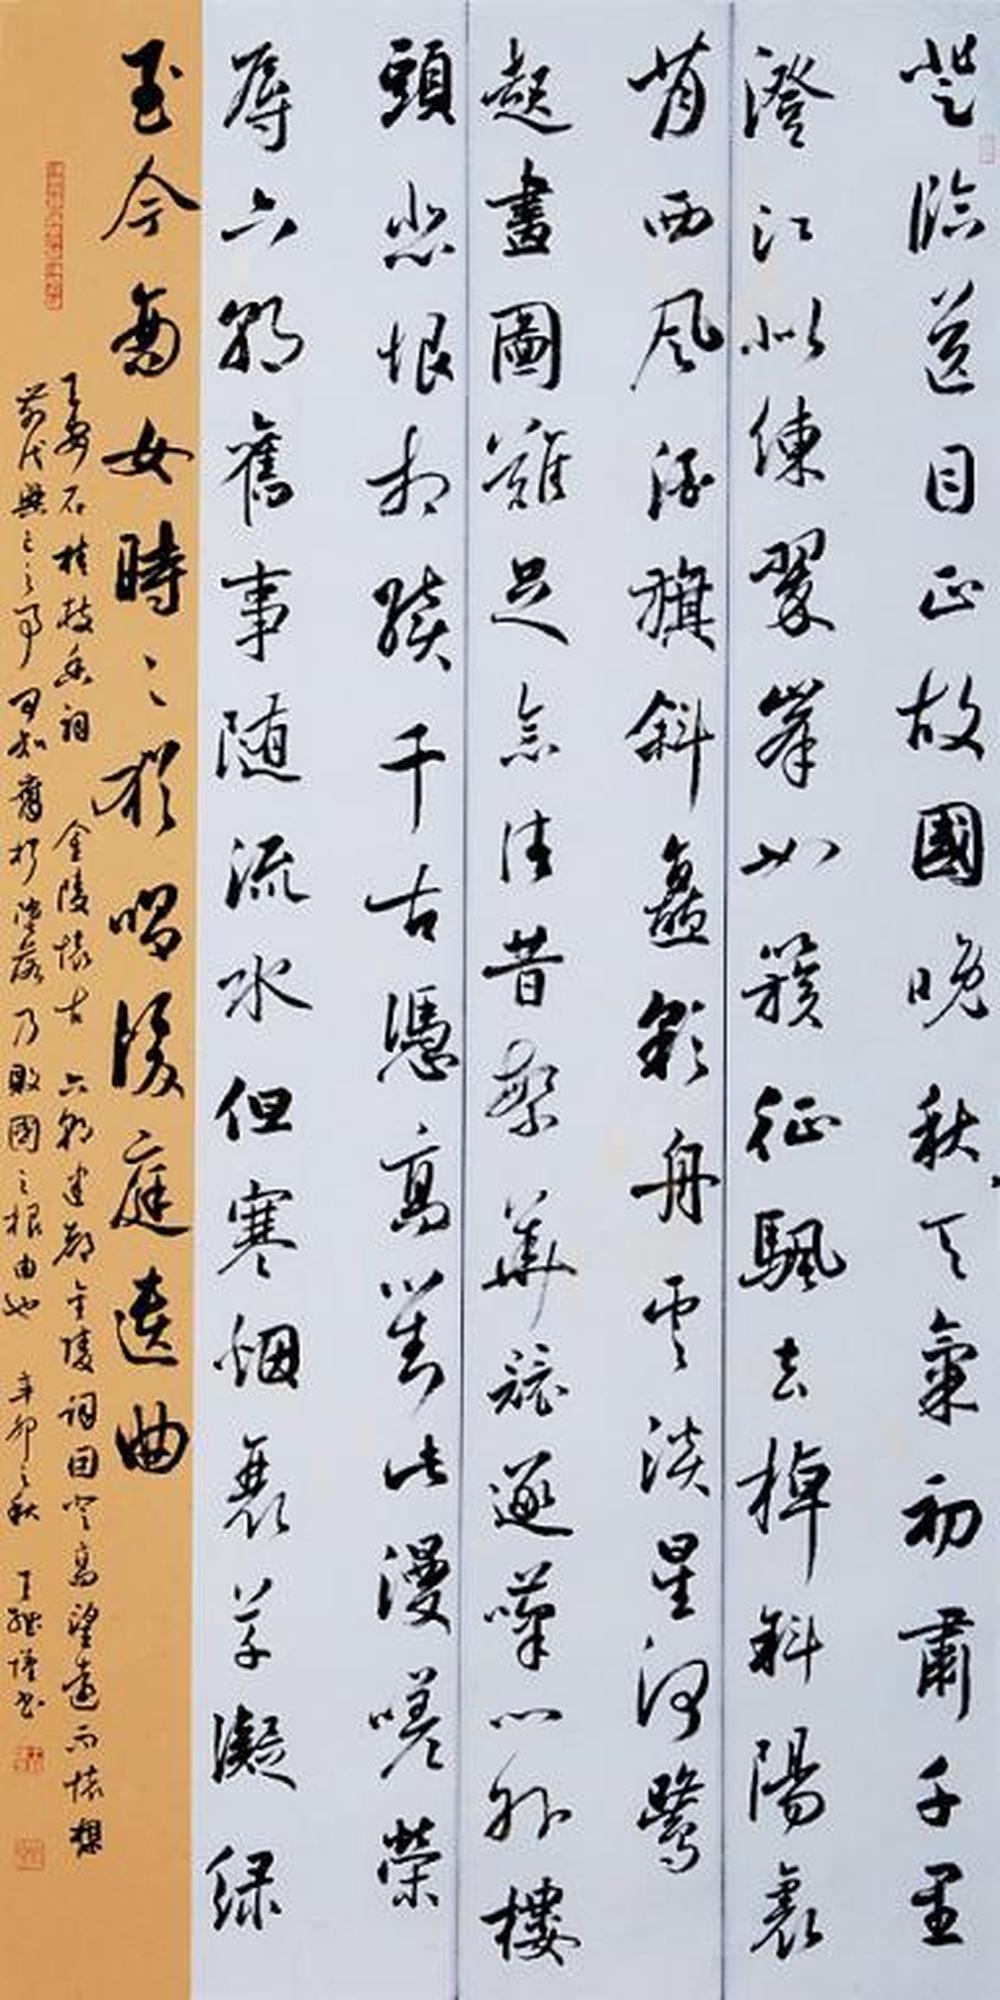 登臨送目正故國晚秋天氣初肅千里
澄江似練翠峯如簇征颿去棹斜陽裏
背西風酒旗斜矗彩舟雲淡星河鷺
起畫圖難足念往昔繁華競逐嘆门外樓
頭悲恨相續千古憑高對此漫嗟榮
辱六朝舊事随流水但寒烟衰草凝绿
至今商女時〻猶唱後庭遗曲
王安石桂枝香詞 金陵懷古 六朝建都金陵詞因登高望遠而懷想
前代興亡之事 可知奢 堕落乃敗國之根由也 辛卯之秋